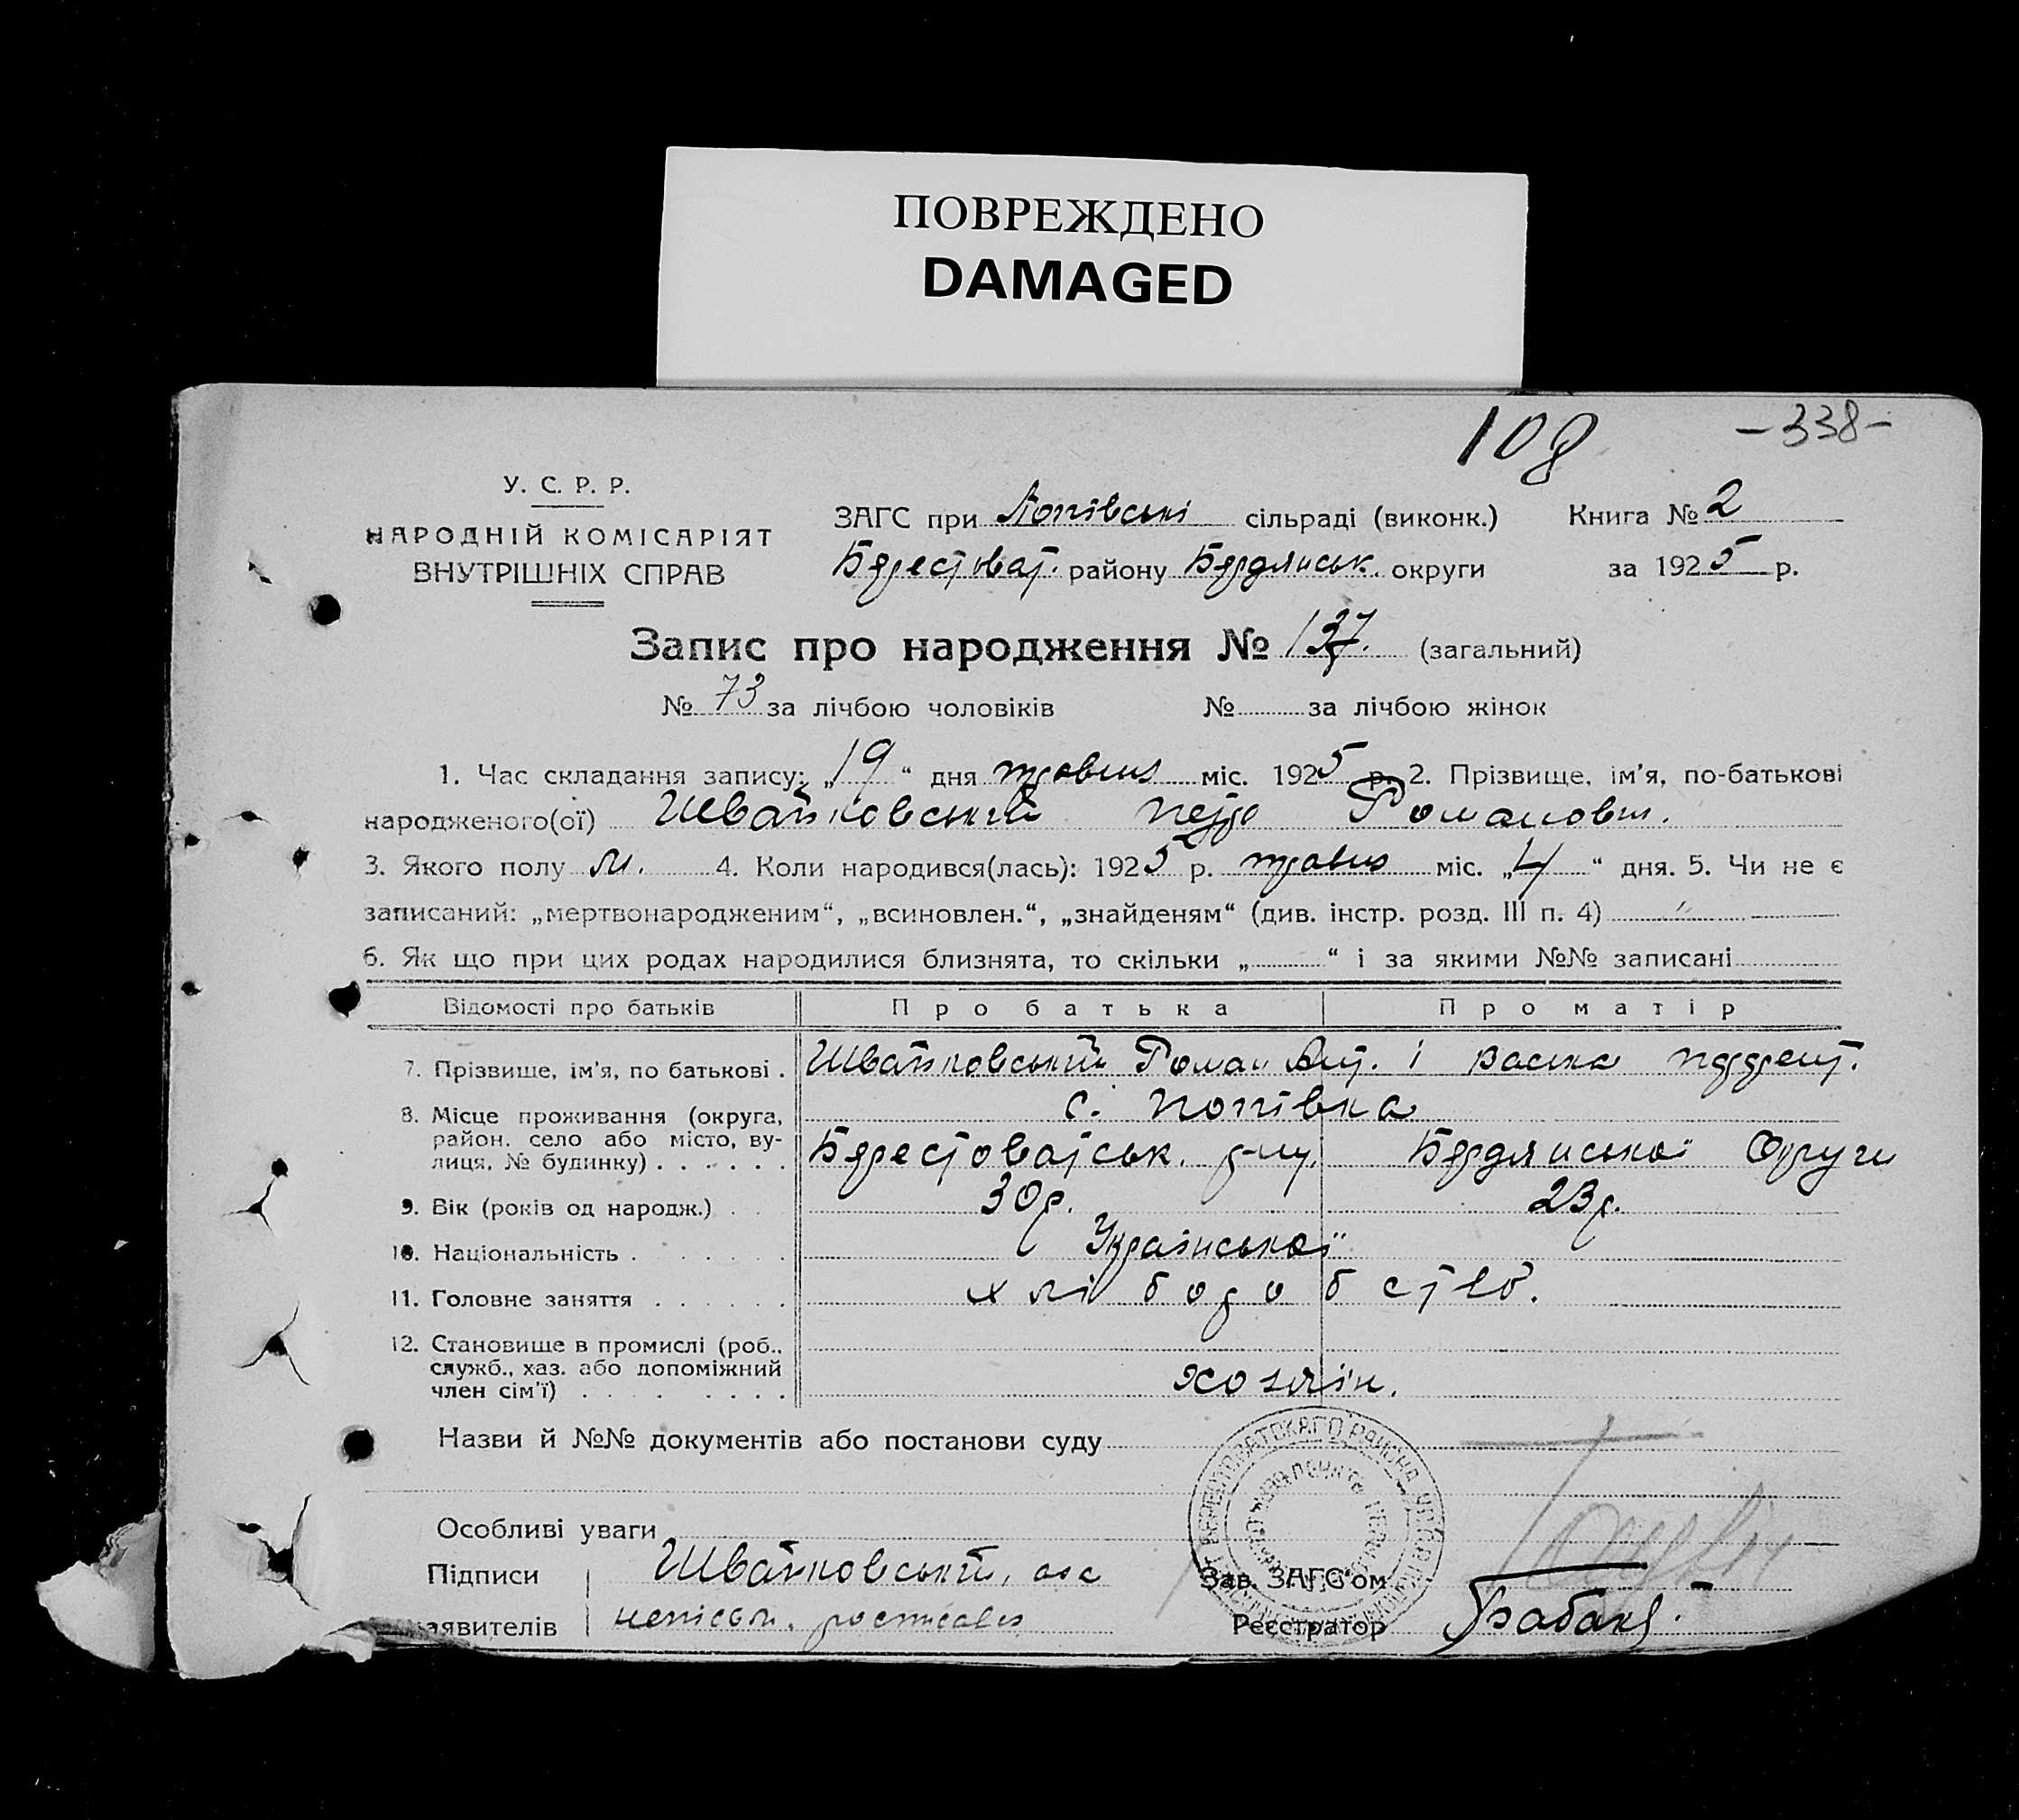 ПОВРЕЖДЕНО
DAMAGED
108
-338-
У. С. Р. Р.
НАРОДНІЙ КОМІСАРІЯТ
ВНУТРІШНІХ СПРАВ
ЗАГС при Попівські сільраді (виконк.) Книга № 2
Берестоват. району Бердянськ. округи за 1925 р.
Запис про народження № 137. (загальний)
№ 73 за лічбою чоловіків № за лічбою жінок
1. Час складання запису: „19“ дня травня міс. 1925 р. 2. Прізвище, ім'я, по-батькові
народженого(ої) Швайковський Петро Романович.
3. Якого полу м. 4. Коли народився(лась): 1925 р. травня міс. „4“ дня. 5. Чи не є
записаний: „мертвонародженим“, „всиновлен.“, „знайденям“ (див. інстр. розд. III п. 4) "
6. Як що при цих родах народилися близнята, то скільки „ “ і за якими №№ записані
Відомості про батьків Про батька Про матір
7. Прізвише, ім'я, по батькові . Швайковський Роман Ант. і
8. Місце проживання (округа, с. Попівка
район. село або місто, ву-
лиця, № будинку) . . . . . . Берестоватськ. р-ну. Бердянської Округи
9. Вік (років од народж.) . . 30р. 23р.
10. Національність . . . . . . Української
11. Головне заняття . . . . . . хліборобство.
12. Становище в промислі (роб.,
служб., хаз. або допоміжний
член сім'ї) . . . . . . . . хозяїн.
Назви й №№ документів або постанови суду
БЕРЕСТОВАТСКАГО РАЙОНА
Особливі уваги
Підписи Швайковський, а за
Зав. ЗАГС'ом
аявителів неписьм. росписався
Реєстратор